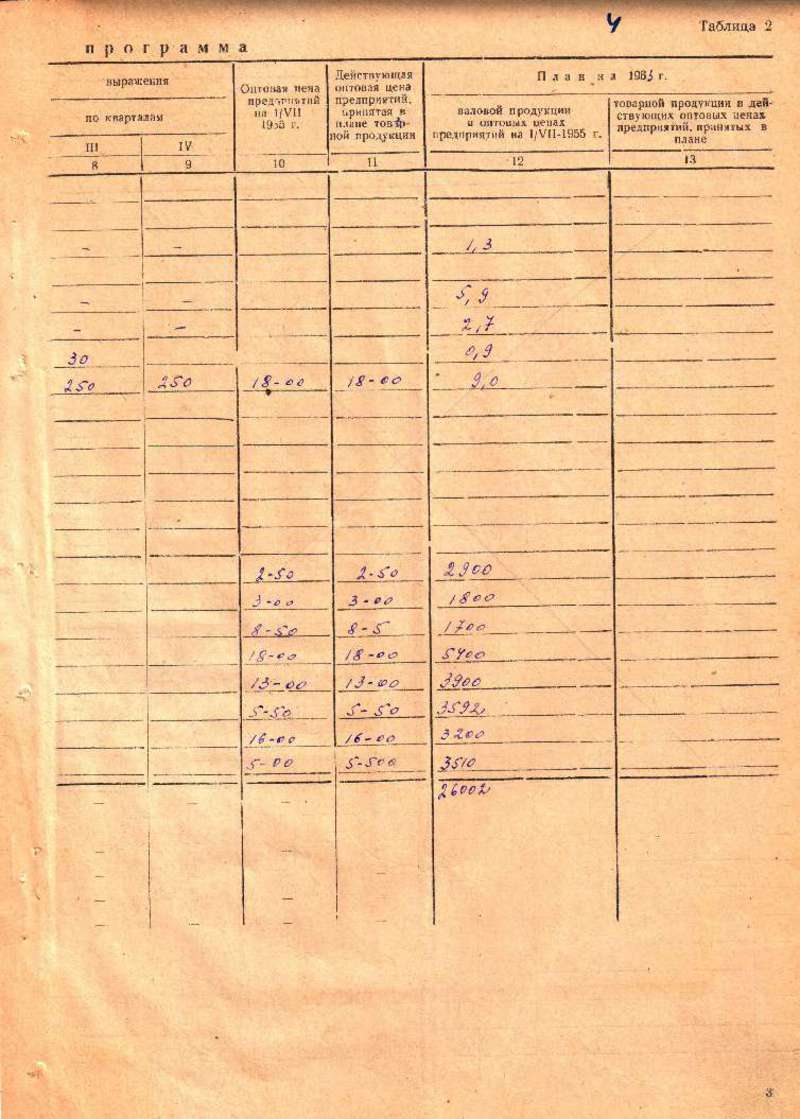 4
Таблица 2
программа
выражения
по кварталам
III IV
Оптовая цена
предприятий
на I/VII
1955 г.
Действующая
оптовая цена
предприятий,
принятая в
плане товар-
ной продукции
План на 1963 г.
валовой продукции
в оптовых ценах
предприятий на I/VII-1955 г.
товарной продукции в дей-
ствующих оптовых ценах
предприятий, принятых в
плане
8 9 10 11 12 13
– – 1,3
– – 5,9
– – 2,7
30 0,9
250 250 18-00 18-00 9,0
2-50 2-50 2900
3-00 3-00 1800
8-50 8-5 1700
18-00 18-00 5400
13-00 13-00 3900
5-50 5-50 3592
16-00 16-00 3200
5-00 5-500 3510
26002
– – –
–
–
–
– –
– –
–
3